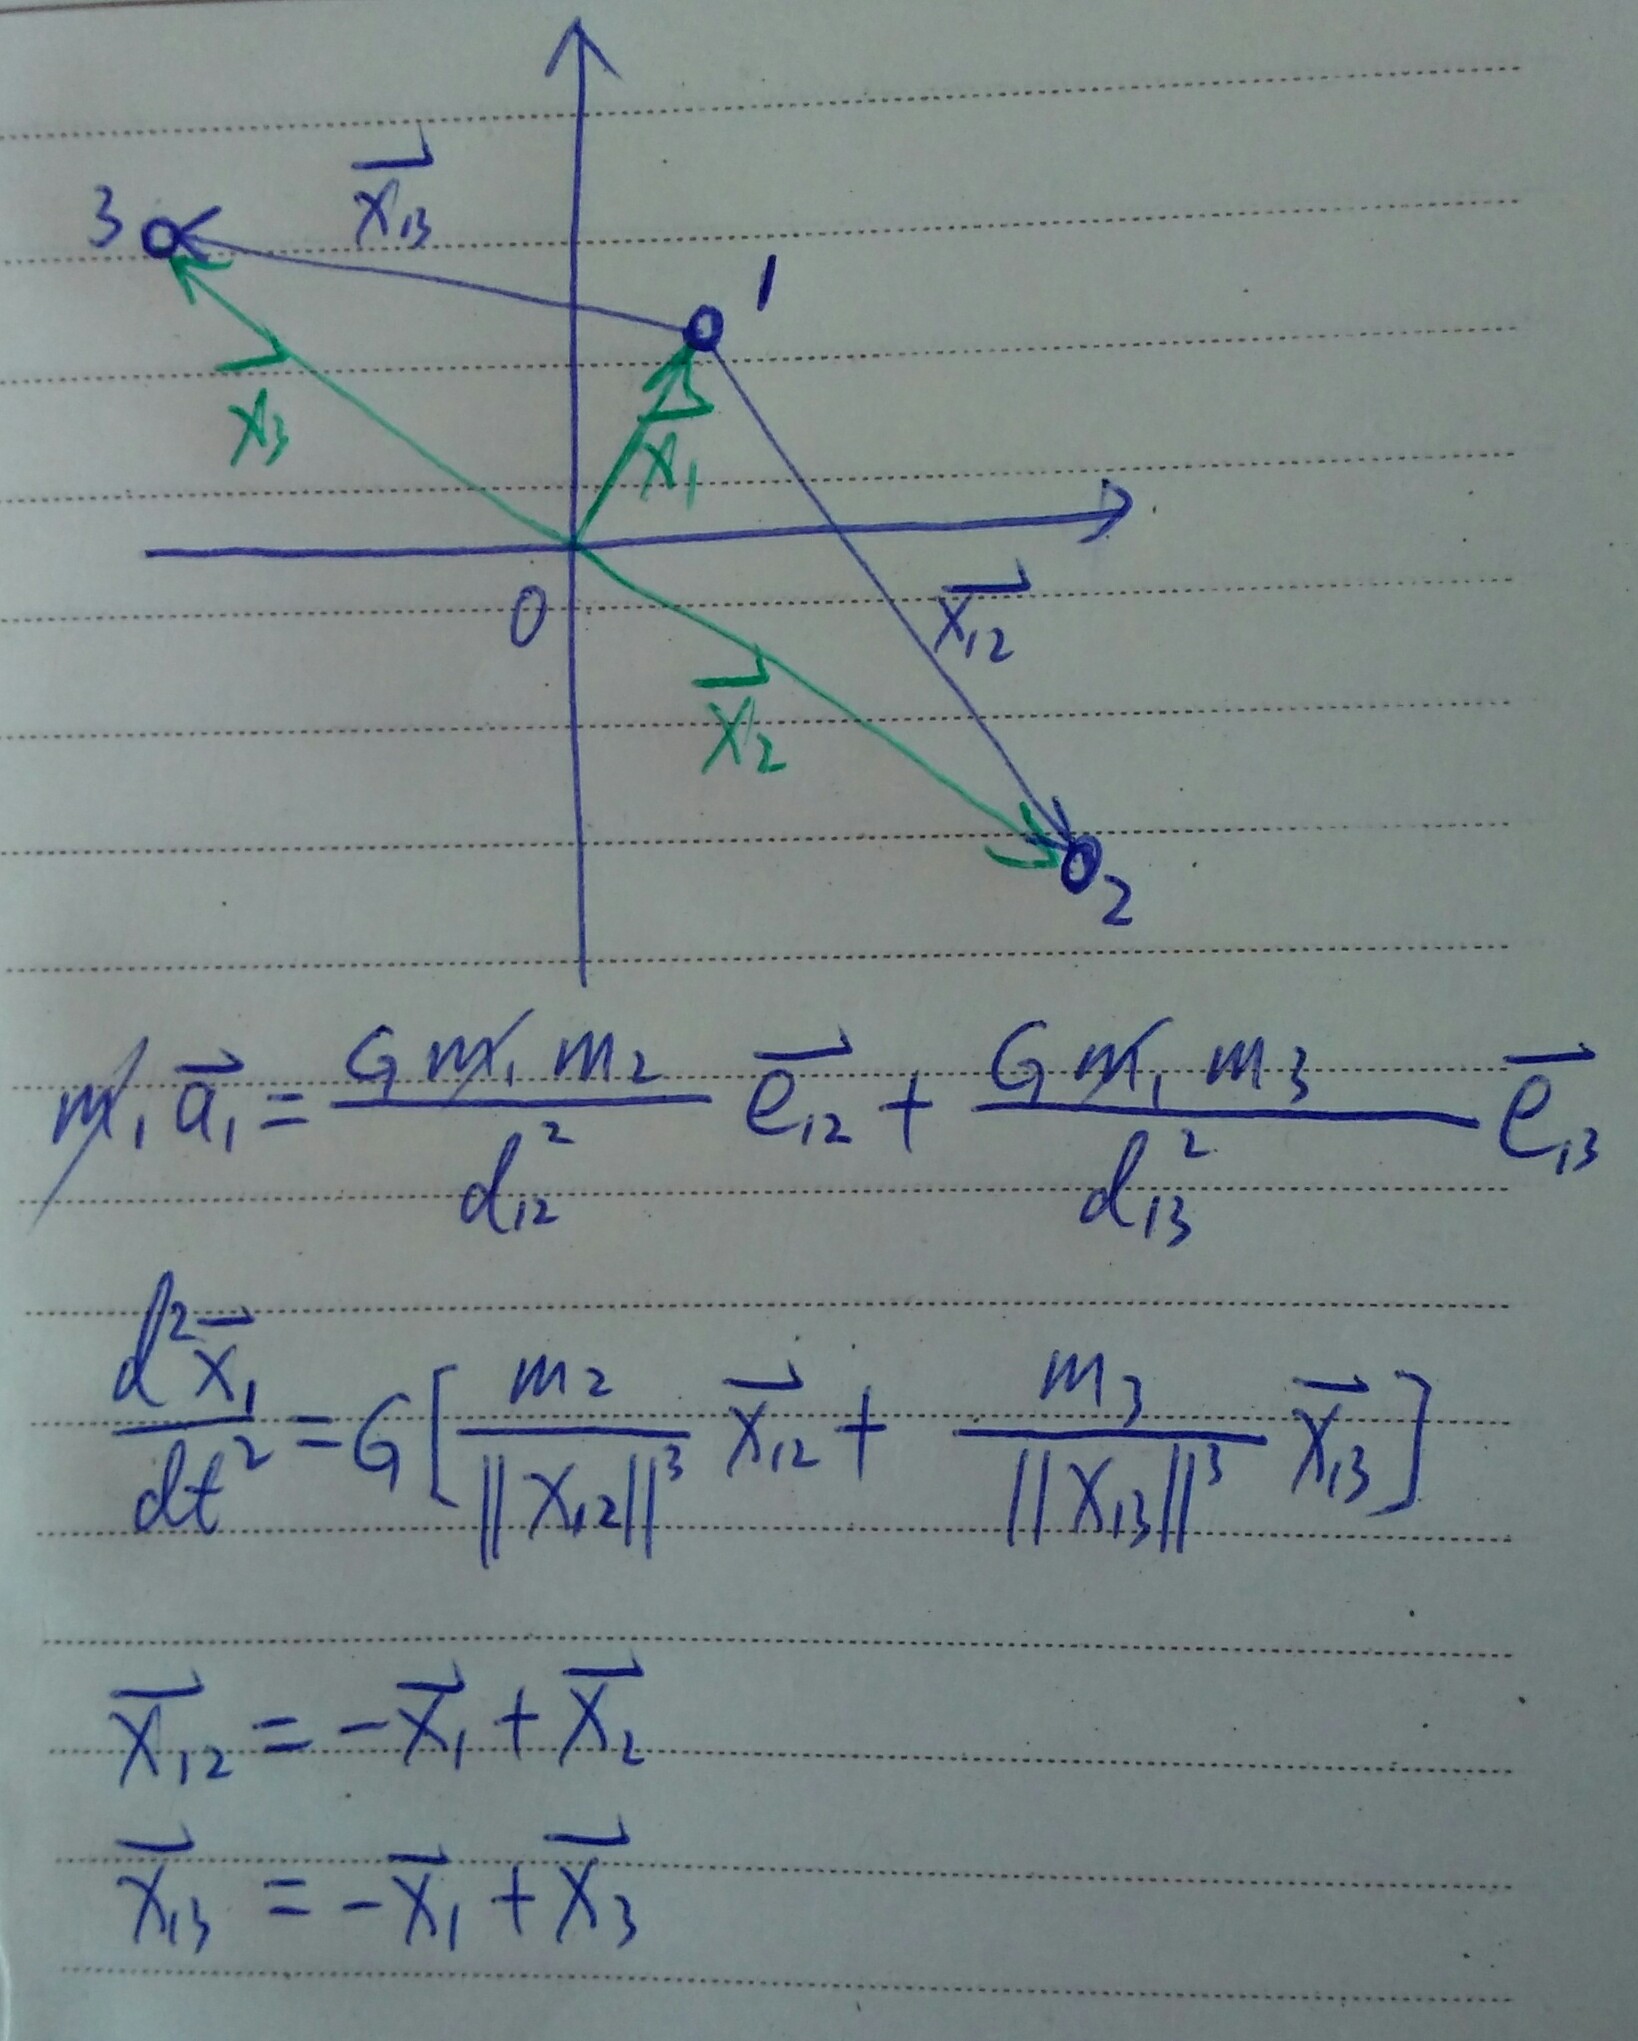 3
x⃗₁₃
1
x⃗₃
x⃗₁
0
x⃗₁₂
x⃗₂
2
m₁a⃗₁ = Gm₁m₂/d₁₂² e⃗₁₂ + Gm₁m₃/d₁₃² e⃗₁₃
d²x⃗₁/dt² = G[m₂/||x₁₂||³ x⃗₁₂ + m₃/||x₁₃||³ x⃗₁₃]
x⃗₁₂ = -x⃗₁ + x⃗₂
x⃗₁₃ = -x⃗₁ + x⃗₃